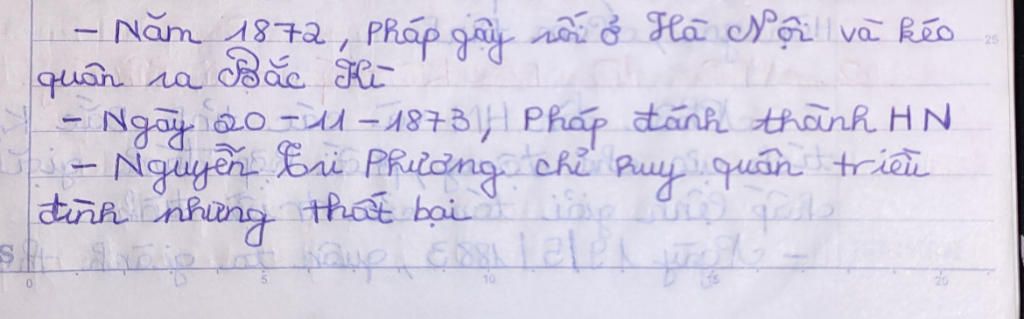 - Năm 1872, Pháp gây rối ở Hà Nội và kéo
quân ra Bắc Kì
- Ngày 20-11-1873, Pháp đánh thành HN
- Nguyễn Tri Phương chỉ huy quân triều
đình nhưng thất bại
0 5 10 15 20
25